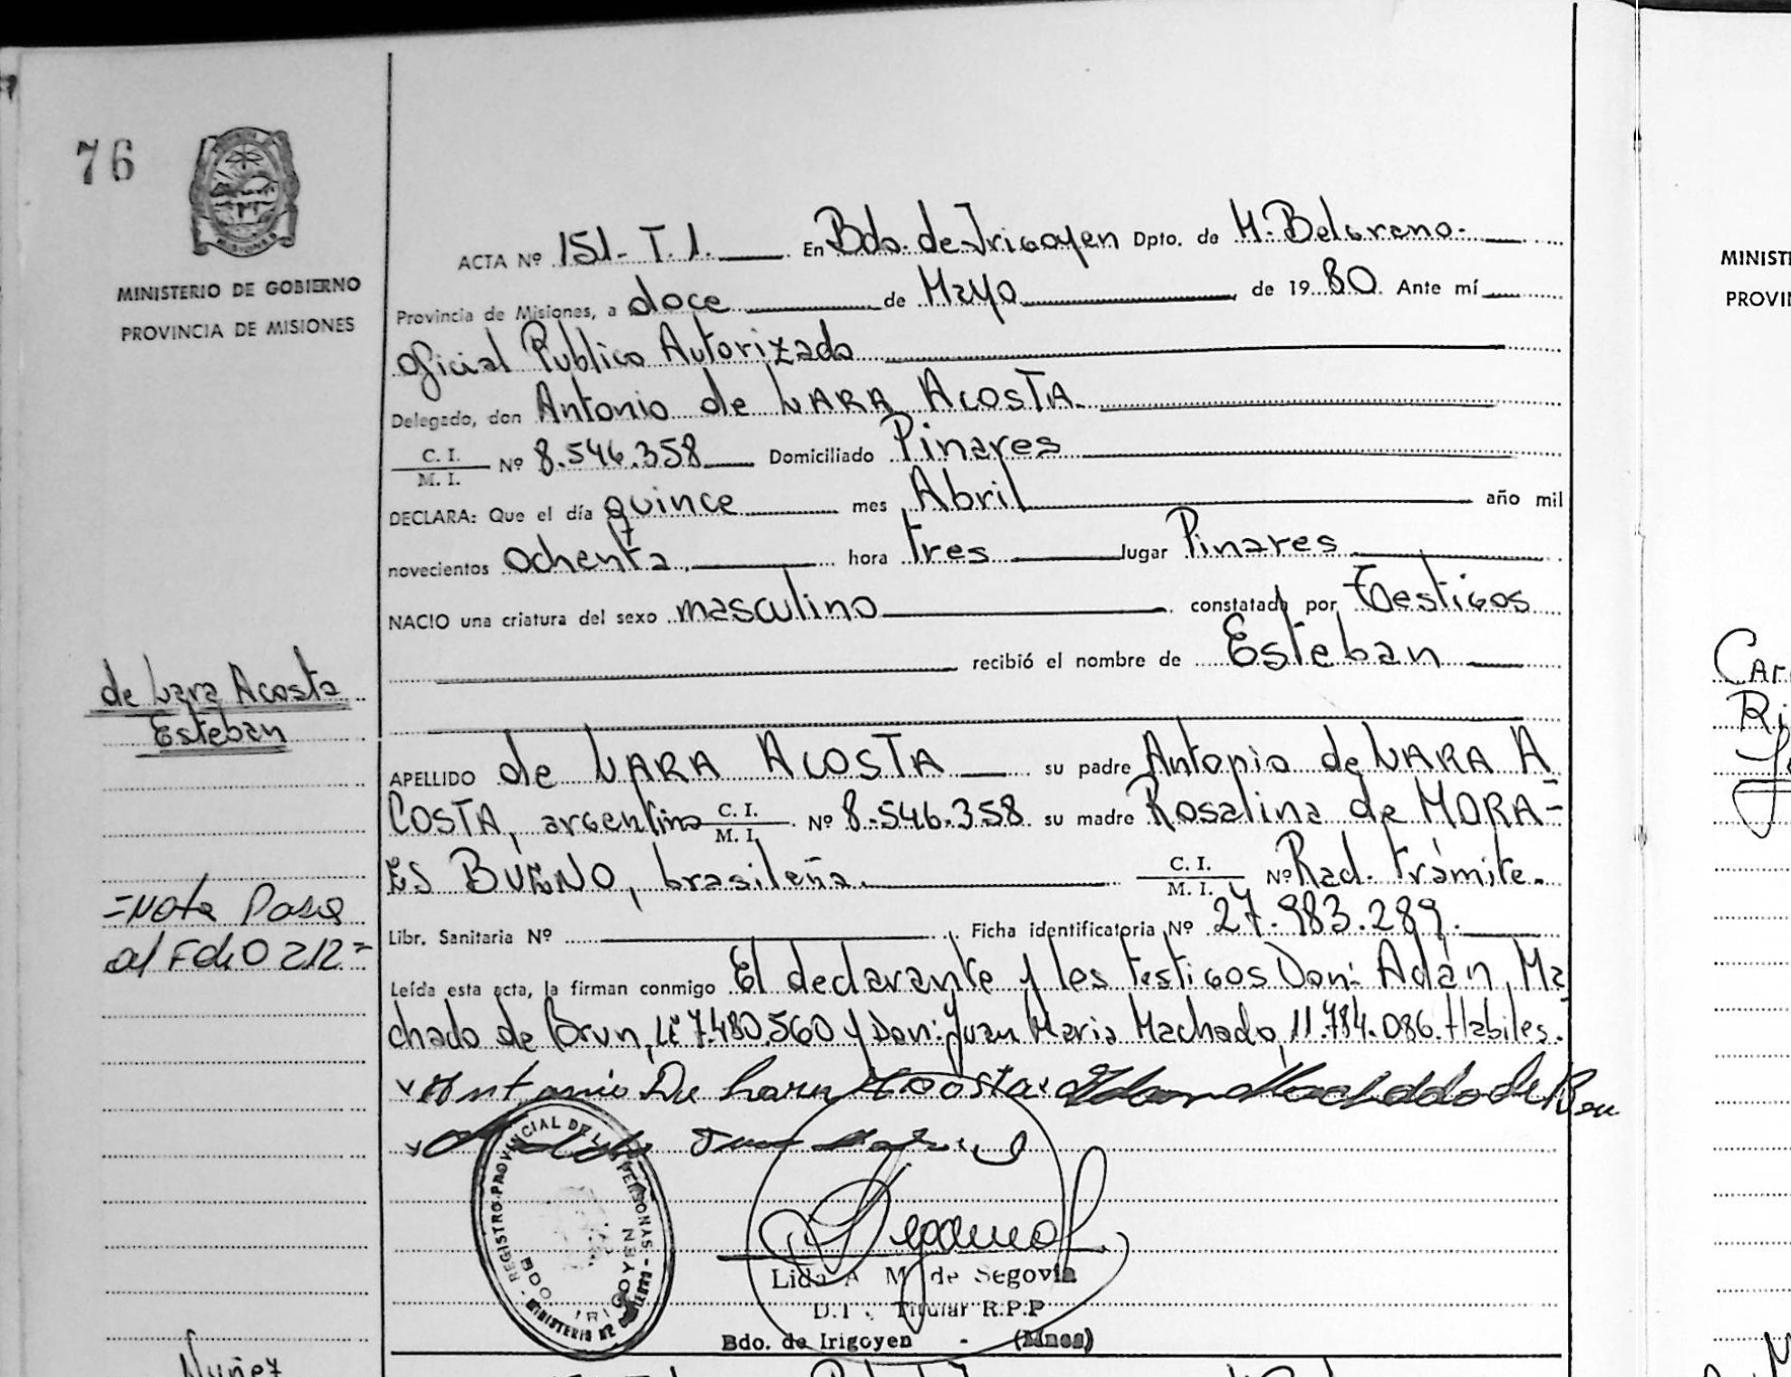 76
MINISTERIO DE GOBIERNO
PROVINCIA DE MISIONES
ACTA Nº 151-T.1. En Bdo. de Irigoyen Dpto. de M. Belgrano.
Provincia de Misiones, a doce de Mayo de 1980 Ante mí
Oficial Publico Autorizado
Delegado, don Antonio de LARA ACOSTA.
C. I.
M. I. Nº 8.546.358 Domiciliado Pinares
DECLARA: Que el día quince mes Abril año mil
novecientos ochenta hora tres lugar Pinares
NACIO una criatura del sexo masculino constatada por Testigos
recibió el nombre de Esteban
de Lara Acosta
Esteban
APELLIDO de LARA ACOSTA su padre Antonio de LARA A
COSTA, argentino C. I. M. I. Nº 8.546.358 su madre Rosalina de MORA-
ES BUENO, brasileña. C. I. M. I. Nº Rad. trámite.
=Nota Pasa
al Folio 212=
Libr. Sanitaria Nº Ficha identificatoria Nº 27.983.289.
Leída esta acta, la firman conmigo El declarante y los testigos Don: Adán Ma
chado de Brun, LE 7.480.560 y Don: Juan Maria Machado, 11.784.086. Habiles.
Antonio De Lara Acosta Machado de
REGISTRO PROVINCIAL DE LAS PERSONAS
BDO IRIGOYEN
MINISTERIO DE
Lida A M de Segovia
Titular R.P.P
Bdo. de Irigoyen - (Mnes)
Nuñez
MINIST
PROVI